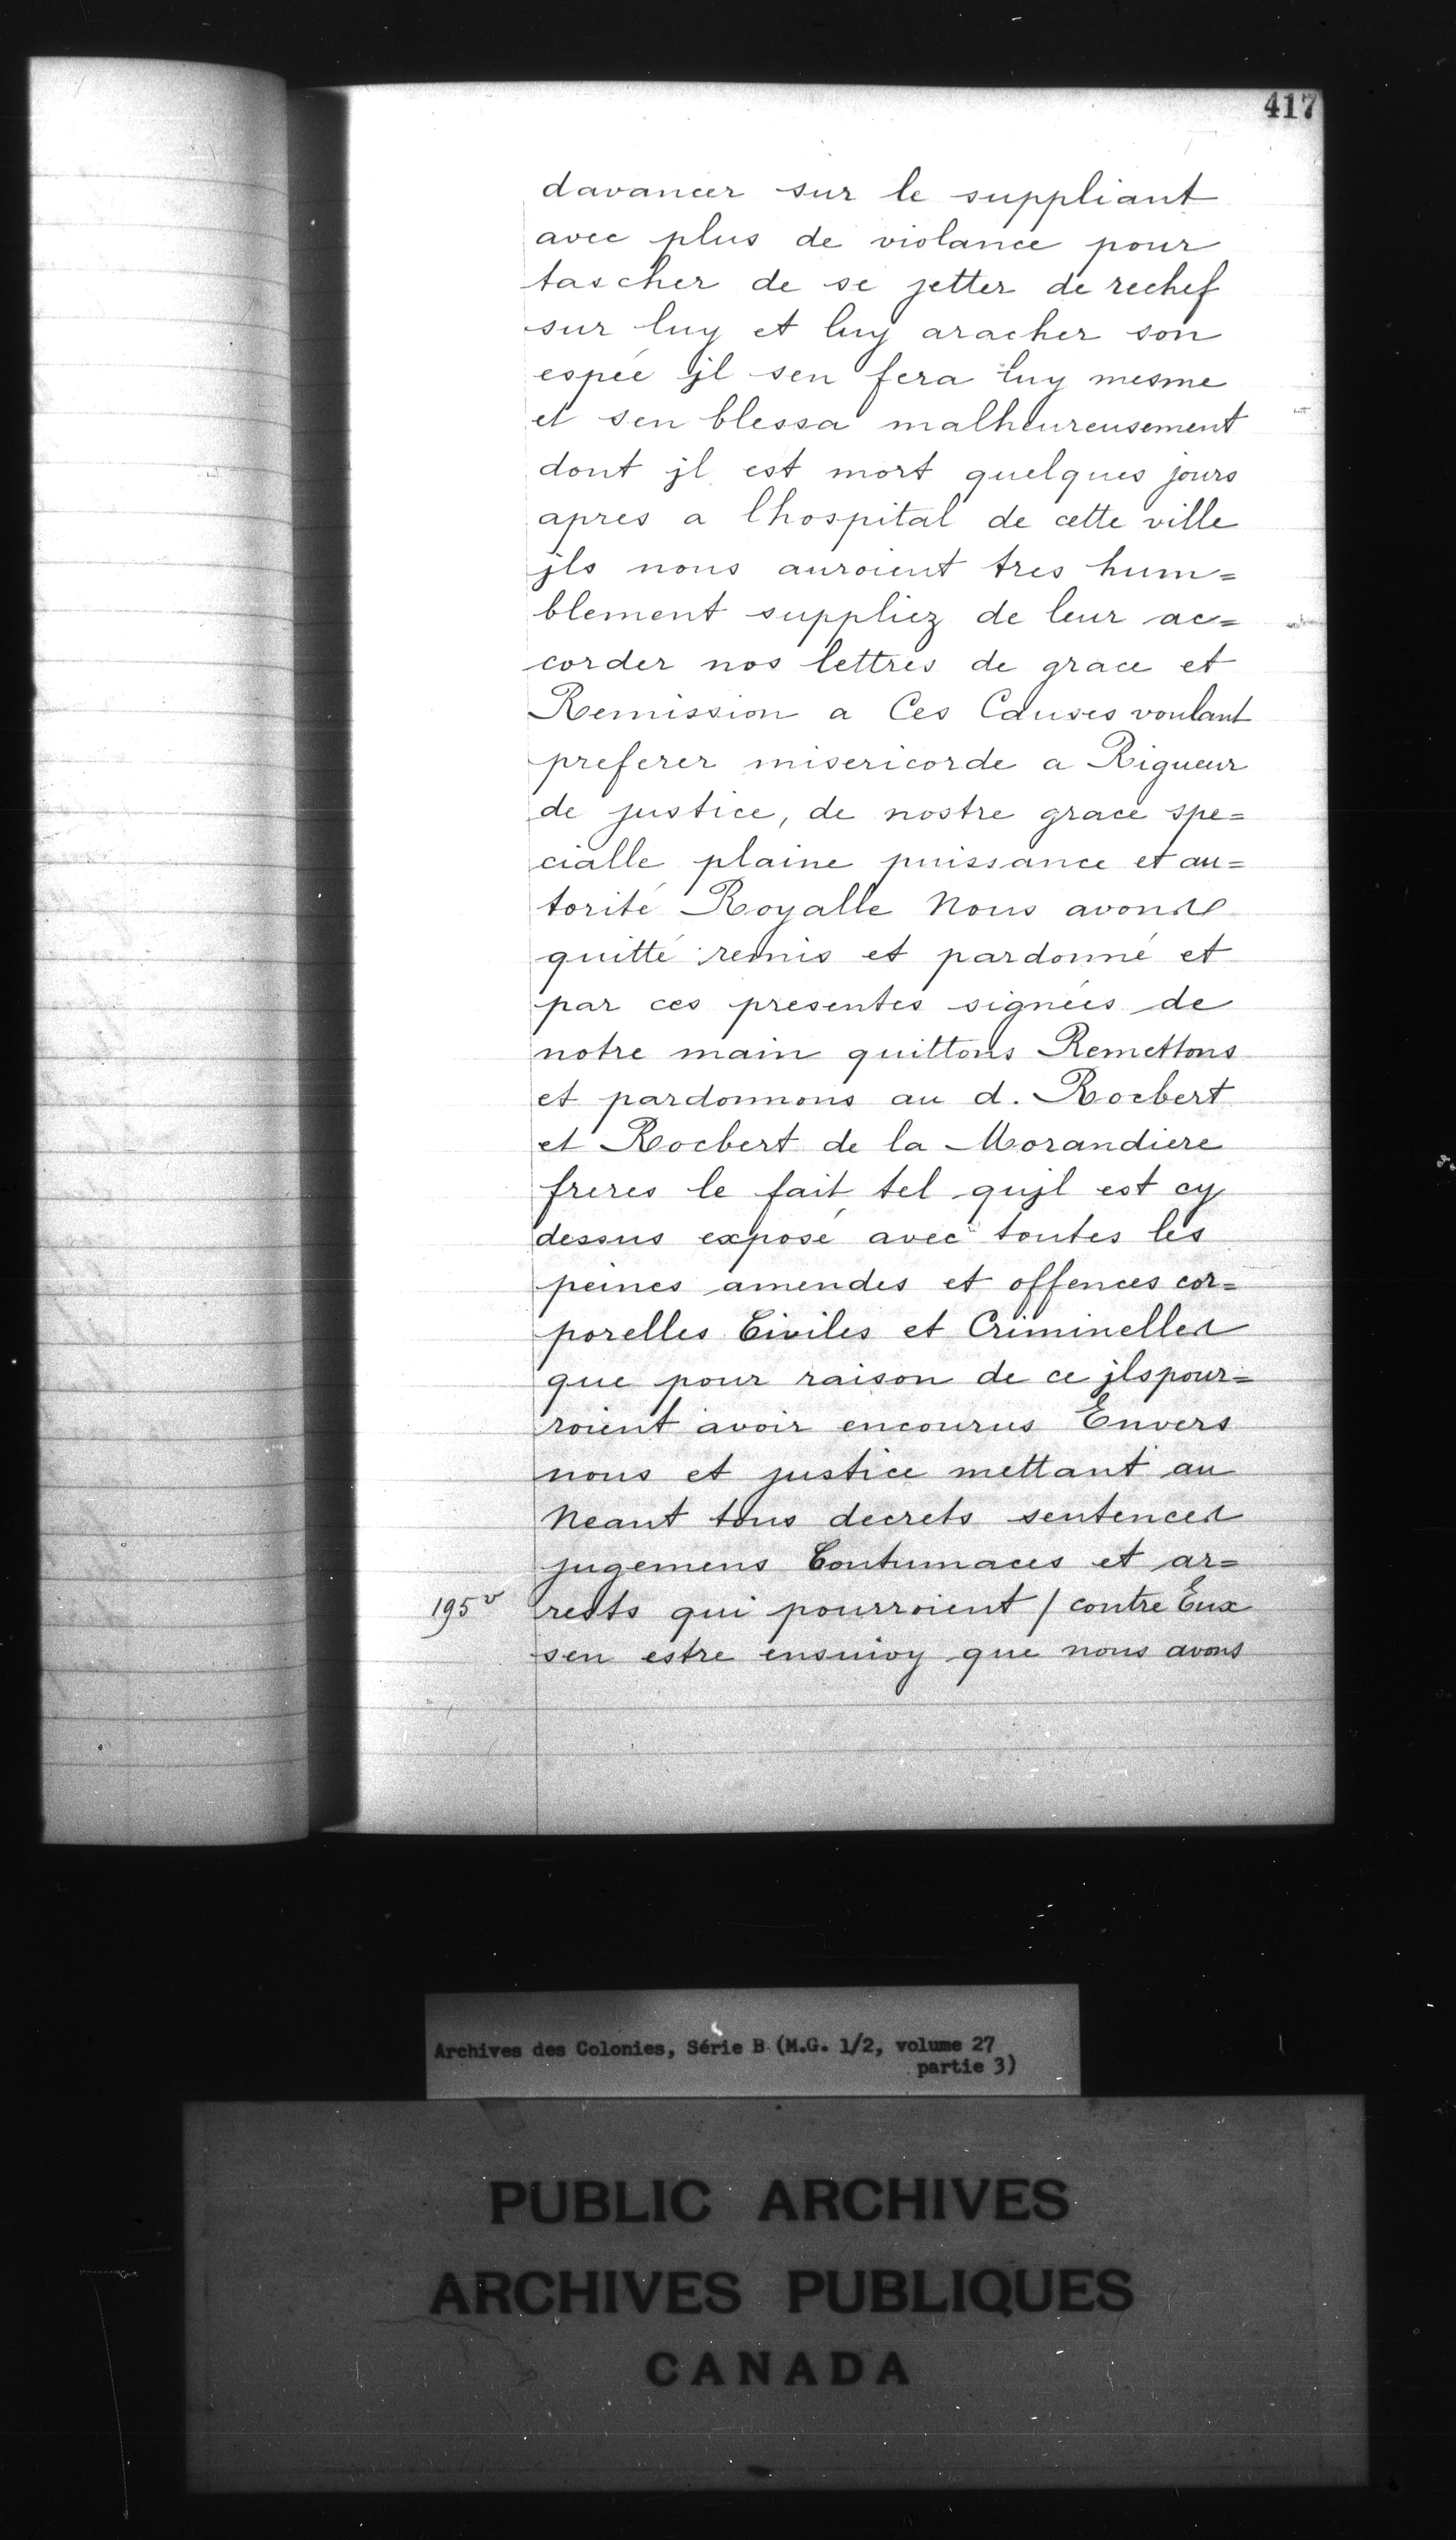 417
davancer sur le suppliant
avec plus de violance pour
tascher de se jetter de rechef
sur luy et luy aracher son
espée jl sen fera luy mesme
et sen blessa malheureusement
dont jl est mort quelques jours
apres a lhospital de cette ville
jls nous auroient tres hum=
blement suppliez de leur ac=
corder nos lettres de grace et
Remission a Ces Causes voulant
preferer misericorde a Rigueur
de justice, de nostre grace spe=
cialle plaine puissance et au=
torité Royalle Nous avons
quitté remis et pardonné et
par ces presentes signées de
notre main quittons Remettons
et pardonnons au d. Rocbert
et Rocbert de la Morandiere
freres le fait tel qujl est cy
dessus exposé avec toutes les
peines amendes et offences cor=
porelles Civiles et Criminelles
que pour raison de ce jls pour=
roient avoir encourus Envers
nous et justice mettant au
Neant tous decrets sentences
jugemens Contumaces et ar=
195 v rests qui pourroient / contre Eux
sen estre ensuivy que nous avons
Archives des Colonies, Série B (M.G. 1/2, volume 27
partie 3)
PUBLIC ARCHIVES
ARCHIVES PUBLIQUES
CANADA